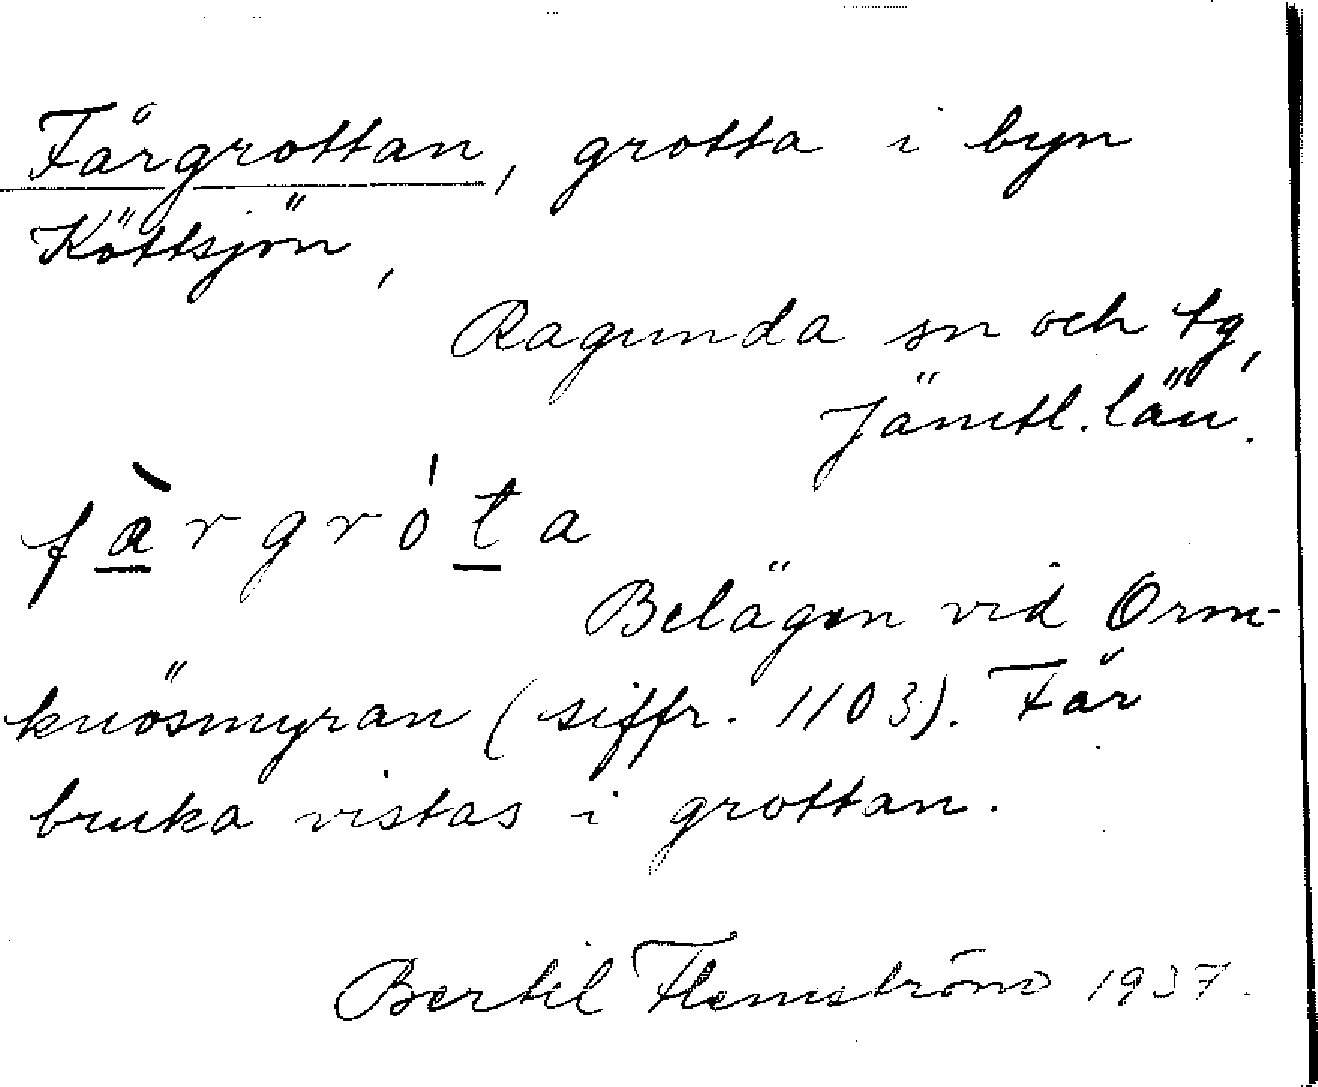 Fårgrottan, grotta i byn
Köttsjön,
Ragunda sn och tg,
Jämtl. län.
fàrgróta
Belägen vid Orm-
knösmyran (siffr. 1103). Får
bruka vistas i grottan.
Bertil Flemström 1937.